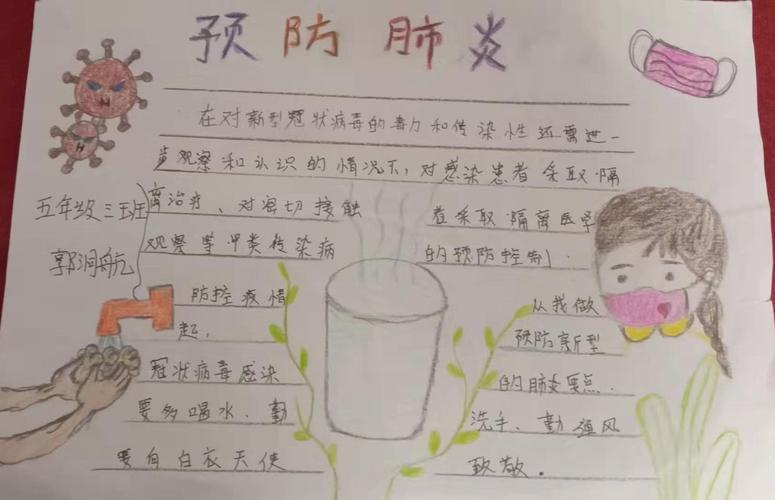 预防肺炎
在对新型冠状病毒的毒力和传染性还需进一
步观察和认识的情况下,对感染患者采取隔
离治疗、对密切接触者采取隔离医学
观察等甲类传染病的预防控制
五年级三班
郭润航
防控疫情从我做
起,预防新型
冠状病毒感染的肺炎要点.
要多喝水、勤洗手、勤通风
要向白衣天使致敬。